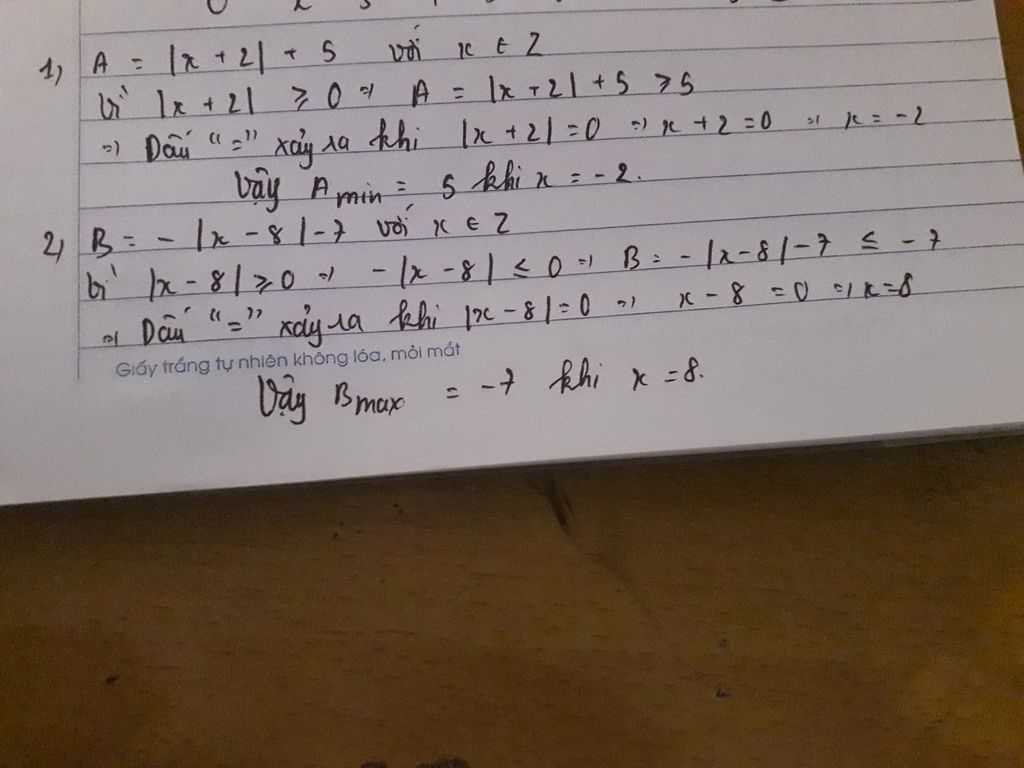 1) A = |x + 2| + 5 với x ∈ Z
Vì |x + 2| ⩾ 0 => A = |x + 2| + 5 ⩾ 5
=> Dấu "=" xảy ra khi |x + 2| = 0 => x + 2 = 0 => x = -2
Vậy A min = 5 khi x = -2.
2) B = - |x - 8| - 7 với x ∈ Z
Vì |x - 8| ⩾ 0 => - |x - 8| ≤ 0 => B = - |x - 8| - 7 ≤ - 7
=> Dấu "=" xảy ra khi |x - 8| = 0 => x - 8 = 0 => x = 8
Giấy trắng tự nhiên không lóa, mỏi mắt
Vậy B max = -7 khi x = 8.